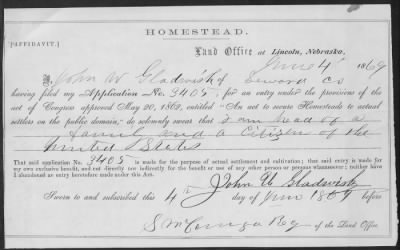 HOMESTEAD.
[AFFIDAVIT.]
Land Office at Lincoln, Nebraska,
June 4th 1869
I, John W Gladwish of Seward co
having filed my Application No. 3405, for an entry under the provisions of the
act of Congress approved May 20, 1862, entitled "An act to secure Homesteads to actual
settlers on the public domain," do solemnly swear that I am head of a
family and a Citizen of the
United States
That said application No. 3405 is made for the purpose of actual settlement and cultivation; that said entry is made for
my own exclusive benefit, and not directly nor indirectly for the benefit or use of any other person or persons whomsoever; neither have
I abandoned an entry heretofore made under this Act.
John W Gladwish
Sworn to and subscribed this 4th day of June 1869 before
Reg of the Land Office.